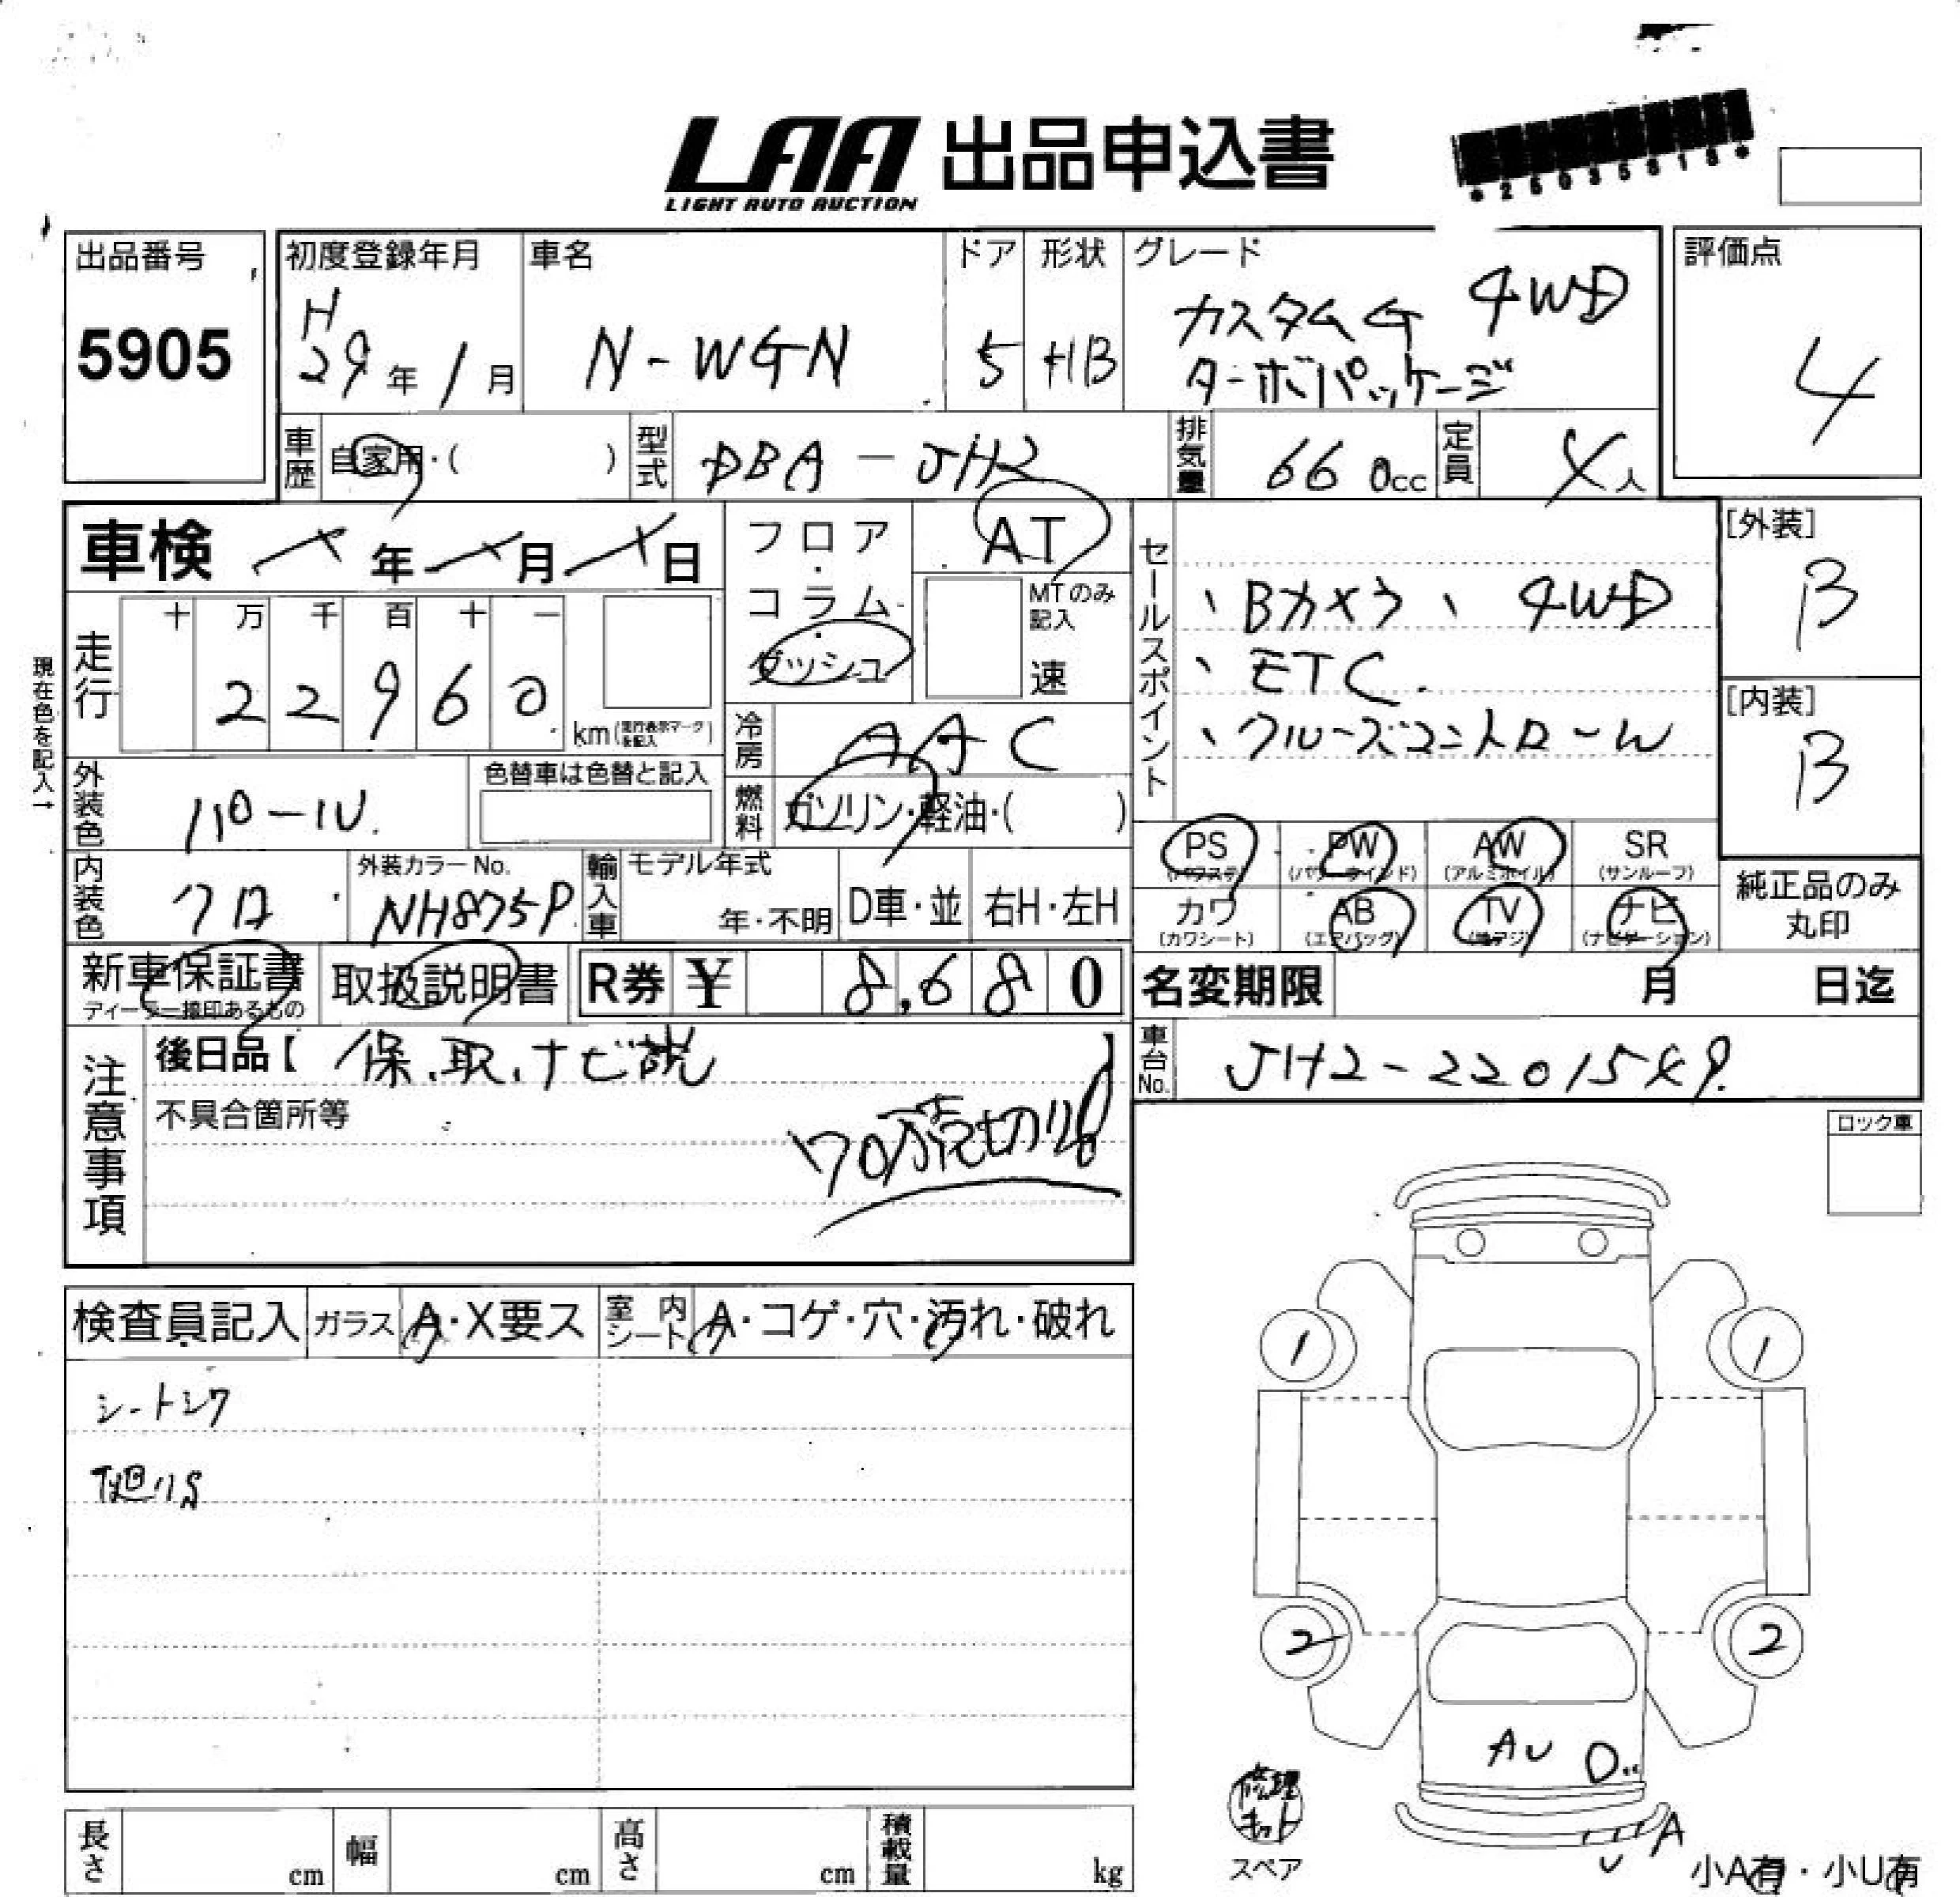 LAA 出品申込書
LIGHT AUTO AUCTION
出品番号
5905
初度登録年月
H
29年1月
車名
N-WGN
ドア
5
形状
HB
グレード
カスタムG 4WD
ターボパッケージ
評価点
4
車歴
自家用・( )
型式
DBA-JH2
排気量
660cc
定員
4人
車検 年 月 日
走行
十 万 千 百 十 一
22960
km(走行表示マークを記入)
現在色を記入→
フロア・コラム・ダッシュ
AT
MTのみ記入
速
冷房
AAC
燃料
ガソリン・軽油・( )
セールスポイント
、Bカメラ、4WD
、ETC.
、クルーズコントロール
[外装]
B
[内装]
B
外装色
パール
色替車は色替と記入
内装色
クロ
外装カラーNo.
NH875P
輸入車
モデル年式
年・不明
D車・並
右H・左H
PS
(パワステ)
PW
(パワーウインド)
AW
(アルミホイル)
SR
(サンルーフ)
カワ
(カワシート)
AB
(エアバッグ)
TV
(地デジ)
ナビ
(ナビゲーション)
純正品のみ
丸印
新車保証書
ディーラー捺印あるもの
取扱説明書
R券 ¥ 8,680
名変期限 月 日迄
車台No.
JH2-2201549
注意事項
後日品【 保、取、ナビ説 】
不具合箇所等
ロック車
検査員記入
ガラス
A・X要ス
室内シート
A・コゲ・穴・汚れ・破れ
シートシワ
下廻りS
1
1
2
2
AU
A
U
修理キット
スペア
小A有・小U有
長さ cm
幅 cm
高さ cm
積載量 kg